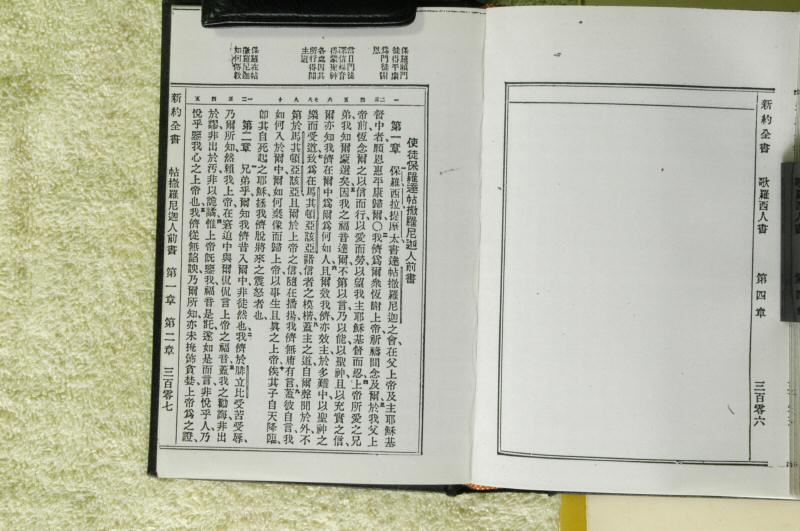 新約全書　歌羅西人書　第四章　三百零六
保羅願門
徒得平康
爲門徒謝
恩
當日門徒
深信福音
得蒙聖神
各處因其
所行得聞
主道
保羅在帖
撒羅尼迦
如何傳教
使徒保羅達帖撒羅尼迦人前書
第一章　保羅西拉提摩太書達帖撒羅尼迦之會在父上帝及主耶穌基
督中者願恩惠平康歸爾○我儕爲爾衆恆謝上帝祈禱間念及爾於我父上
帝前恆念爾之以信而行以愛而勞以望我主耶穌基督而忍上帝所愛之兄
弟我知爾蒙選矣因我之福音達爾不第以言乃以能以聖神且以充實之信
爾亦知我儕在爾中爲爾爲何如人且爾效我儕亦效主於多難中以聖神之
樂而受道致爲在馬其頓亞該亞諸信者之模楷蓋主之道自爾聲聞於外不
第於馬其頓亞該亞且爾於上帝之信隨在播揚我儕無庸有言蓋彼自言我
如何入於爾中爾如何棄像而歸上帝以事生且眞之上帝俟其子自天降臨
卽其自死起之耶穌拯我儕脫將來之震怒者也
第二章　兄弟乎爾知我儕昔入爾中非徒然也我儕於腓立比受苦受辱
乃爾所知然賴我上帝在窘迫中與爾侃侃言上帝之福音蓋我之勸誨非出
於謬非出於汚非以詭譎惟上帝旣鑒我福音是託遂如是而言非悅乎人乃
悅乎鑒我心之上帝也我儕從無諂諛乃爾所知亦未掩飾貪婪上帝爲之證
新約全書　帖撒羅尼迦人前書　第一章　第二章　三百零七